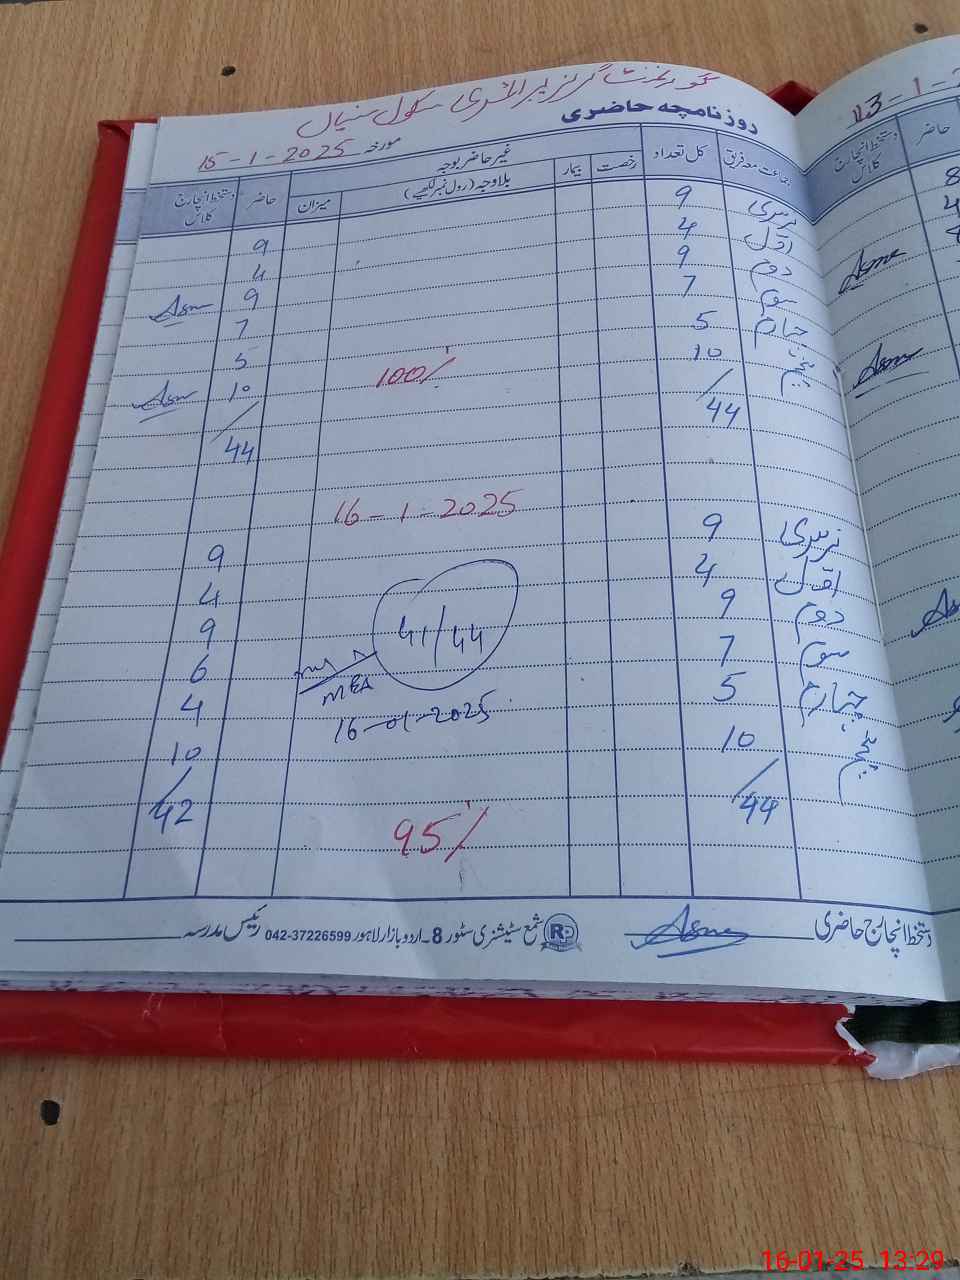 گورنمنٹ گرلز پرائمری سکول
روزنامچہ حاضری
مورخہ 15-1-2025
جماعت معہ فریق کل تعداد غیر حاضر بوجہ حاضر دستخط انچارج کلاس
رخصت بیمار بلاوجہ (رول نمبر لکھیے) میزان
نرسری 9 9
اول 4 4
دوم 9 9 Asma
سوم 7 7
چہارم 5 5
پنجم 10 100% 10 Asma
44 44
16-1-2025
نرسری 9 9
اول 4 4
دوم 9 41/44 9
سوم 7 6
MEA
چہارم 5 16-01-2025 4
پنجم 10 10
44 42
95%
دستخط انچارج حاضری Asma شمع سٹیشنری سٹور 8۔اردو بازار لاہور 042-37226599 رئیس مدرسہ
13-1-2
حاضر دستخط انچارج کلاس
8
4
Asma
Asma
16-01-25 13:29